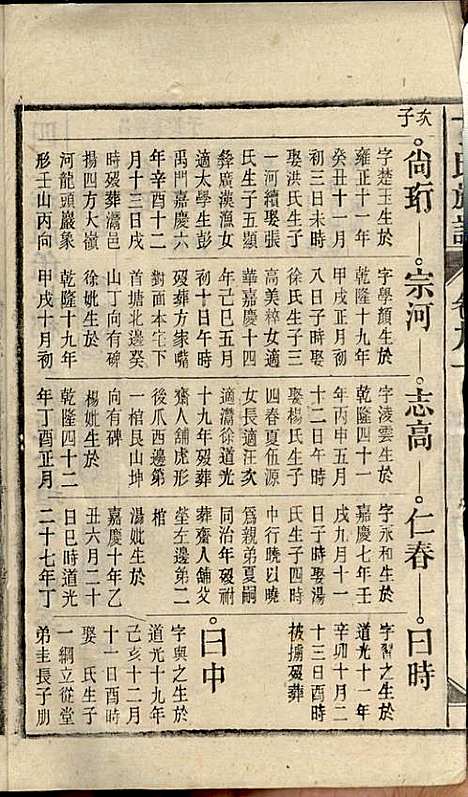 氏族譜
亥子
尙珩
字楚玉生於
雍正十一年
癸丑十一月
初三日未時
娶洪氏生子
一河續娶張
氏生子五顯
彜廣漢漁女
適太學生彭
禹門嘉慶六
年辛酉十二
月十三日戌
時歿葬瀟邑
楊四方大嶺
河龍頭巖象
形壬山丙向
宗河
字學顏生於
乾隆十九年
甲戌正月初
八日子時娶
徐氏生子三
高美粹女適
華嘉慶十四
年己巳五月
初十日午時
歿葬方家嘴
對面本宅下
首塘北邊癸
山丁向有碑
徐妣生於
乾隆十九年
甲戌十月初
志高
字淩雲生於
乾隆四十一
年丙申五月
十二日午時
娶楊氏生子
四春夏伍源
女長適汪次
適瀟徐道光
十九年歿葬
齋人舖虎形
後爪西邊第
一棺艮山坤
向有碑
楊妣生於
乾隆四十二
年丁酉正月
仁春
字永和生於
嘉慶七年壬
戌九月十一
日子時娶湯
氏生子四時
中行曉以曉
爲親弟夏嗣
同治年歿祔
葬齋人舖父
塋左邊第二
棺
湯妣生於
嘉慶十年乙
丑六月二十
日巳時道光
二十七年丁
曰時
字習之生於
道光十一年
辛卯十月二
十三日酉時
被擄歿葬
曰中
字與之生於
道光十九年
己亥十二月
十一日酉時
娶 氏生子
一綱立從堂
弟圭長子朋